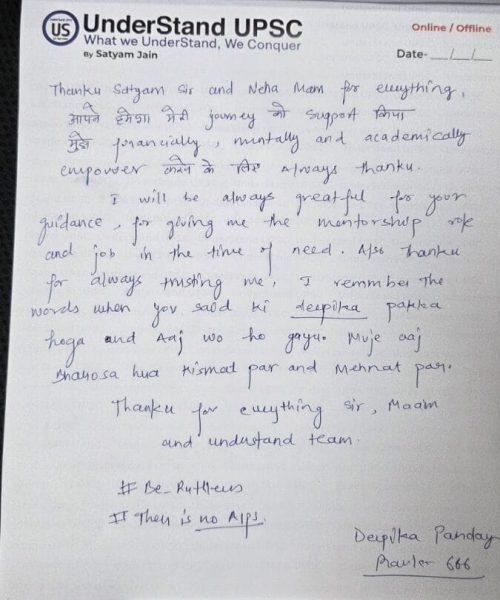 US UnderStand UPSC
What we UnderStand, We Conquer
By Satyam Jain
Online / Offline
Date- __/__/__
Thanku Satyam Sir and Neha Mam for everything,
आपने हमेशा मेरी journey को support किया
मुझे financially, mentally and academically
empower करने के लिए Always thanku.
I will be always greatful for your
guidance, for giving me the mentorship role
and job in the time of need. Also Thanku
for always trusting me, I remmber the
words when you said ki deepika pakka
hoga and Aaj wo ho gaya. Muje aaj
Bharosa hua Kismat par and Mehnat par.
Thanku for everything Sir, Maam
and understand team.
# Be_Ruthless
# There is no AIPS.
Deepika Panday
Rank 666